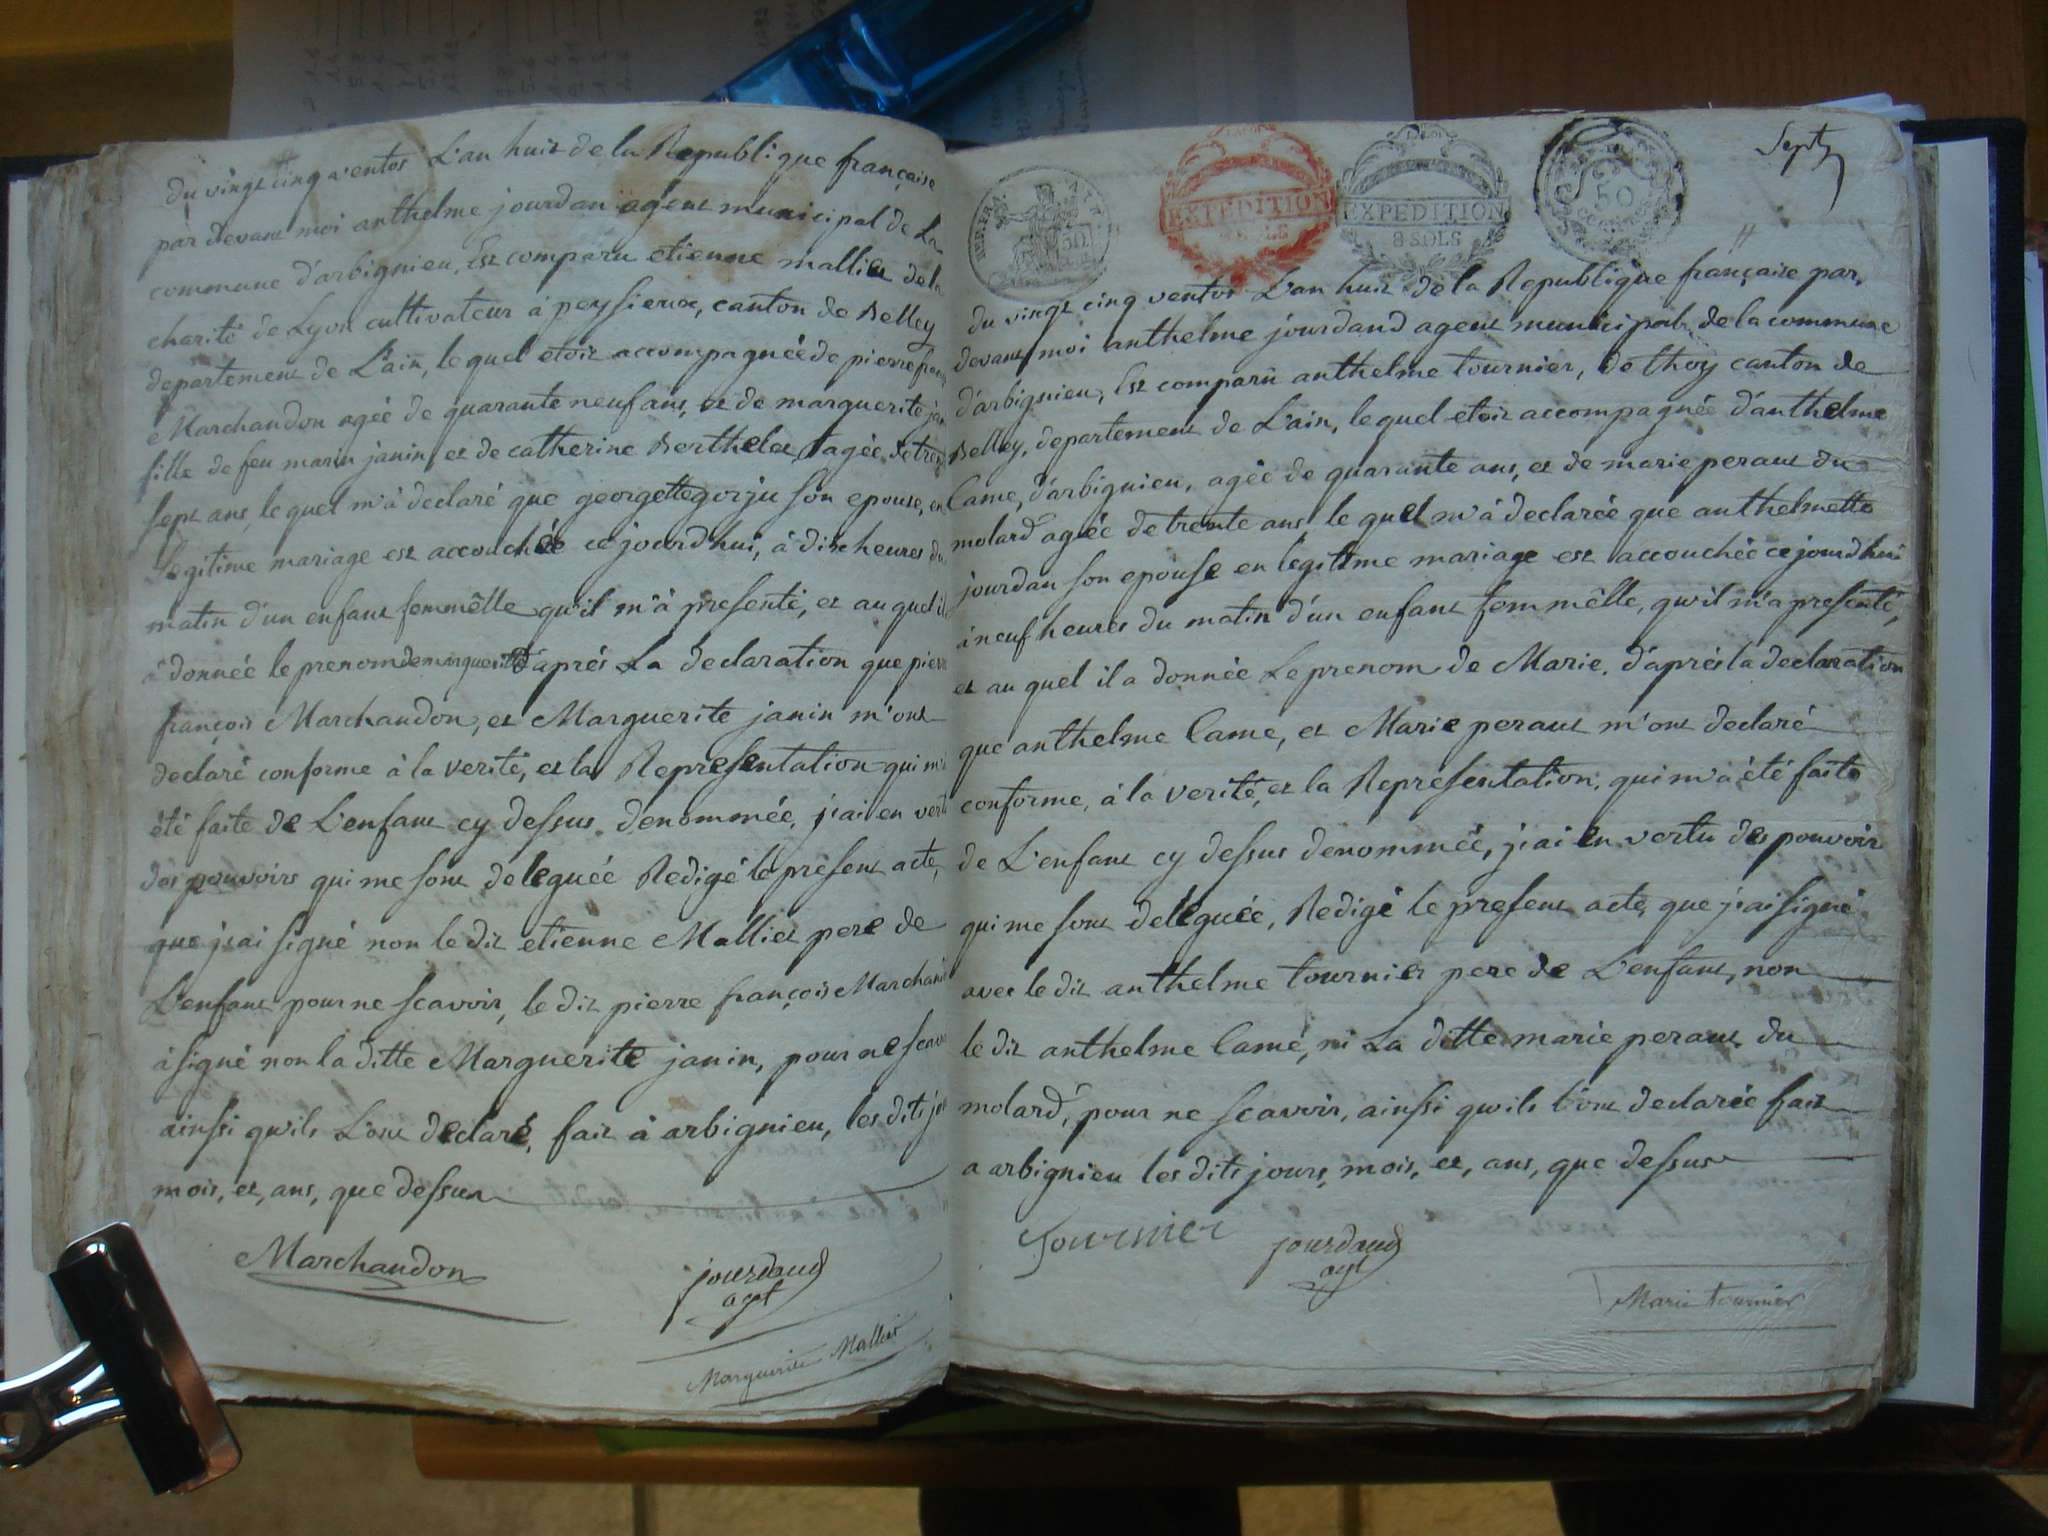 du vingt cinq ventos L'an huit de la Republique française
par devant moi anthelme jourdan agent municipal de La
commune d'arbignieu, Est comparu etienne mallier de la
charité de Lyon cultivateur à peyssieux, canton de Belley
departement de L'ain, lequel etoit accompagnée de pierre fran
Marchandon agée de quarante neuf ans, et de marguerite jan
fille de feu marin janin, et de catherine Berthelet, agée de tren
sept ans, lequel m'à declaré que georgette gorju son epouse, en
Legitime mariage est accouchée ce jourd'hui, à dix heures du
matin d'un enfant femmêlle qu'il m'à presenté, et au quel il
à donnée le prenom de marguerite d'aprés La declaration que pierre
françois Marchandon, et Marguerite janin m'ont
declaré conforme à la verité, et la Representation qui m'a
été faite de L'enfant cy dessus denommée, j'ai en vertu
des pouvoirs qui me sont deleguée Redigé le present acte,
que j'ai signé non le dit etienne Mallier pere de
L'enfant pour ne scavoir, le dit pierre françois Marchand
à signé non la ditte Marguerite janin, pour ne scavoir
ainsi qu'ils L'ont declaré, fait à arbignieu, les dits jou
mois, et, ans, que dessus
Marchandon
jourdand
agt
Marguerite Mallier
Sept
REP. FRA.
50
LA LOI
EXPEDITION
8 SOLS
LA LOI
EXPEDITION
8 SOLS
50
CENTIMES
du vingt cinq ventos L'an huit de la Republique française par
devant moi anthelme jourdand agent municipal de la commune
d'arbignieu, Est comparu anthelme tournier, de thoy canton de
Belley, departement de L'ain, lequel etoit accompagnée d'anthelme
Came, d'arbignieu, agée de quarante ans, et de marie perant du
molard agée de trente ans lequel m'à declarée que anthelmette
jourdan son epouse en legitime mariage est accouchée ce jourd'hui
à neuf heures du matin d'un enfant femmêlle, qu'il m'a presenté,
et au quel il a donnée Le prenom de Marie. d'après la declaration
que anthelme Came, et Marie perant m'ont declaré
conforme, à la verité, et la Representation, qui m'a été faite
de L'enfant cy dessus denommée, j'ai en vertu des pouvoir
qui me sont deleguée, Redigé le present acte, que j'ai signé
avec le dit anthelme tournier pere de L'enfant, non
le dit anthelme Came, ni La ditte marie perant du
molard, pour ne scavoir, ainsi qu'ils l'ont declarée fait
a arbignieu les dits jours, mois, et, ans, que dessus
Tournier
jourdand
agt
Marie tournier